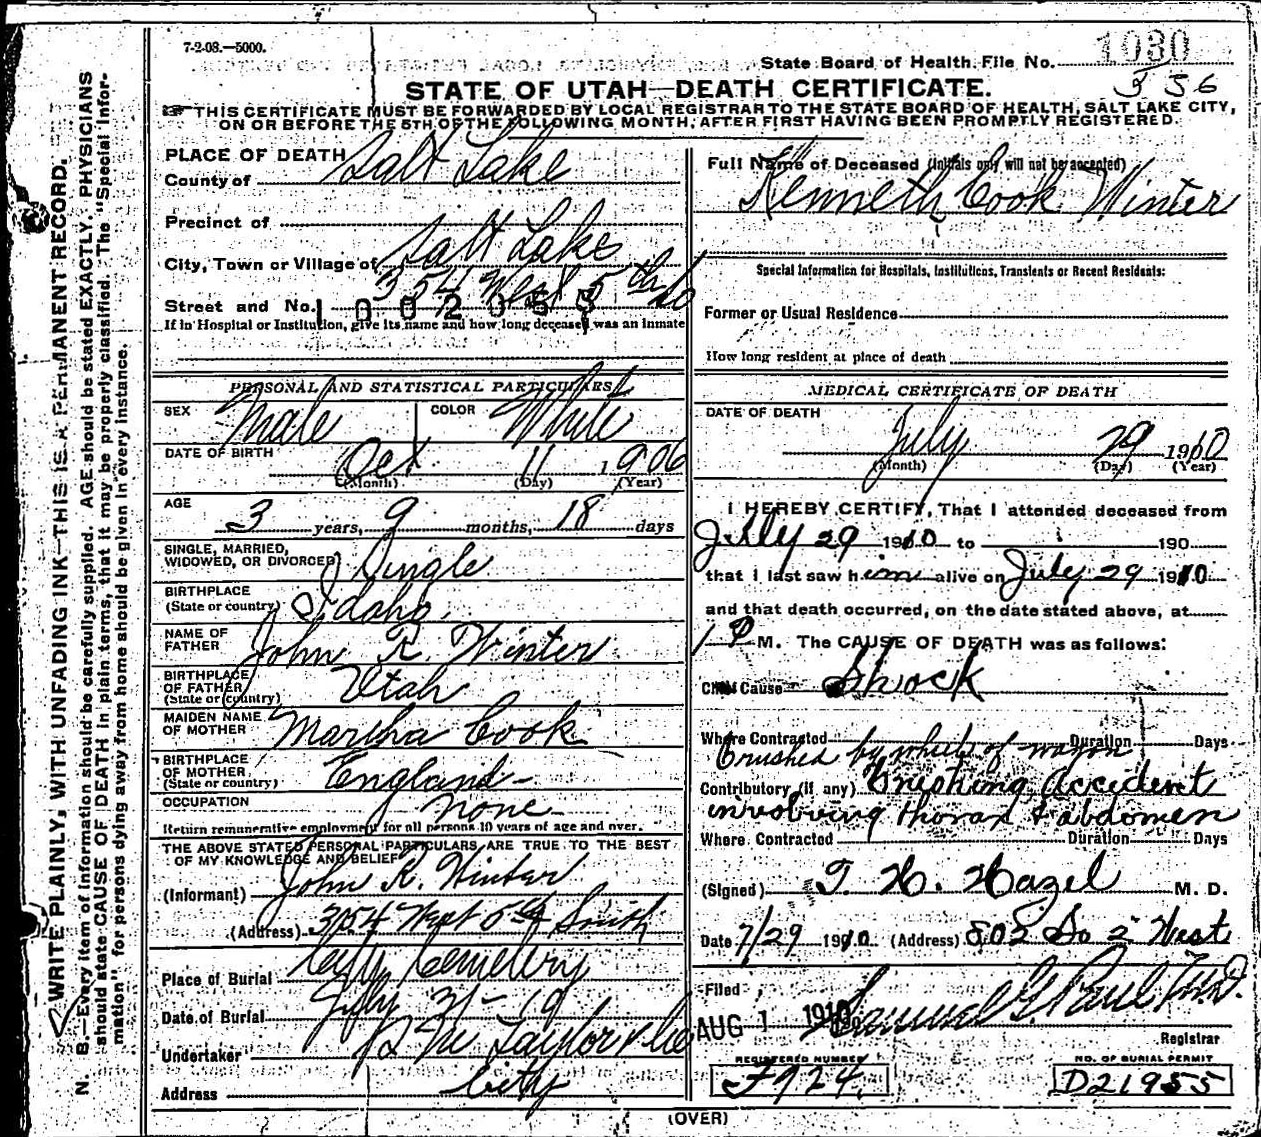 7-2-08.—5000.
State Board of Health File No. 1030
556
STATE OF UTAH—DEATH CERTIFICATE.
THIS CERTIFICATE MUST BE FORWARDED BY LOCAL REGISTRAR TO THE STATE BOARD OF HEALTH, SALT LAKE CITY,
ON OR BEFORE THE 5TH OF THE FOLLOWING MONTH, AFTER FIRST HAVING BEEN PROMPTLY REGISTERED.
WRITE PLAINLY, WITH UNFADING INK—THIS IS A PERMANENT RECORD.
N. B.—Every item of information should be carefully supplied. AGE should be stated EXACTLY. PHYSICIANS
should state CAUSE OF DEATH in plain terms, that it may be properly classified. The "Special Infor-
mation" for persons dying away from home should be given in every instance.
PLACE OF DEATH
County of Salt Lake
Precinct of
City, Town or Village of Salt Lake
Street and No. 354 West 5th So
1002053
If in Hospital or Institution, give its name and how long deceased was an inmate
PERSONAL AND STATISTICAL PARTICULARS
SEX Male COLOR White
DATE OF BIRTH Oct 11, 1906
(Month) (Day) (Year)
AGE 3 years, 9 months, 18 days
SINGLE, MARRIED,
WIDOWED, OR DIVORCED Single
BIRTHPLACE
(State or country) Idaho
NAME OF
FATHER John R. Winter
BIRTHPLACE
OF FATHER Utah
(State or country)
MAIDEN NAME
OF MOTHER Martha Cook
BIRTHPLACE
OF MOTHER England
(State or country)
OCCUPATION none
Return remunerative employment for all persons 10 years of age and over.
THE ABOVE STATED PERSONAL PARTICULARS ARE TRUE TO THE BEST
OF MY KNOWLEDGE AND BELIEF
(Informant) John R. Winter
(Address) 354 West 5th South
Place of Burial City Cemetery
Date of Burial July 31 - 19
Undertaker Taylor & Co
Address City
Full Name of Deceased (Initials only will not be accepted)
Kenneth Cook Winter
Special Information for Hospitals, Institutions, Transients or Recent Residents:
Former or Usual Residence
How long resident at place of death
MEDICAL CERTIFICATE OF DEATH
DATE OF DEATH
July 29 1910
(Month) (Day) (Year)
I HEREBY CERTIFY, That I attended deceased from
July 29 1910 to 190
that I last saw him alive on July 29 1910
and that death occurred, on the date stated above, at
1 P M. The CAUSE OF DEATH was as follows:
Chief Cause Shock
Where Contracted Duration Days
Crushed by wheels of wagon
Contributory (if any) Crushing Accident
involving thorax & abdomen
Where Contracted Duration Days
(Signed) T. H. Hazel M. D.
Date 7/29 1910 (Address) 802 So 2 West
Filed
AUG 1 1910 Samuel G. Paul M.D.
Registrar
REGISTERED NUMBER
F924
NO. OF BURIAL PERMIT
D21955
(OVER)